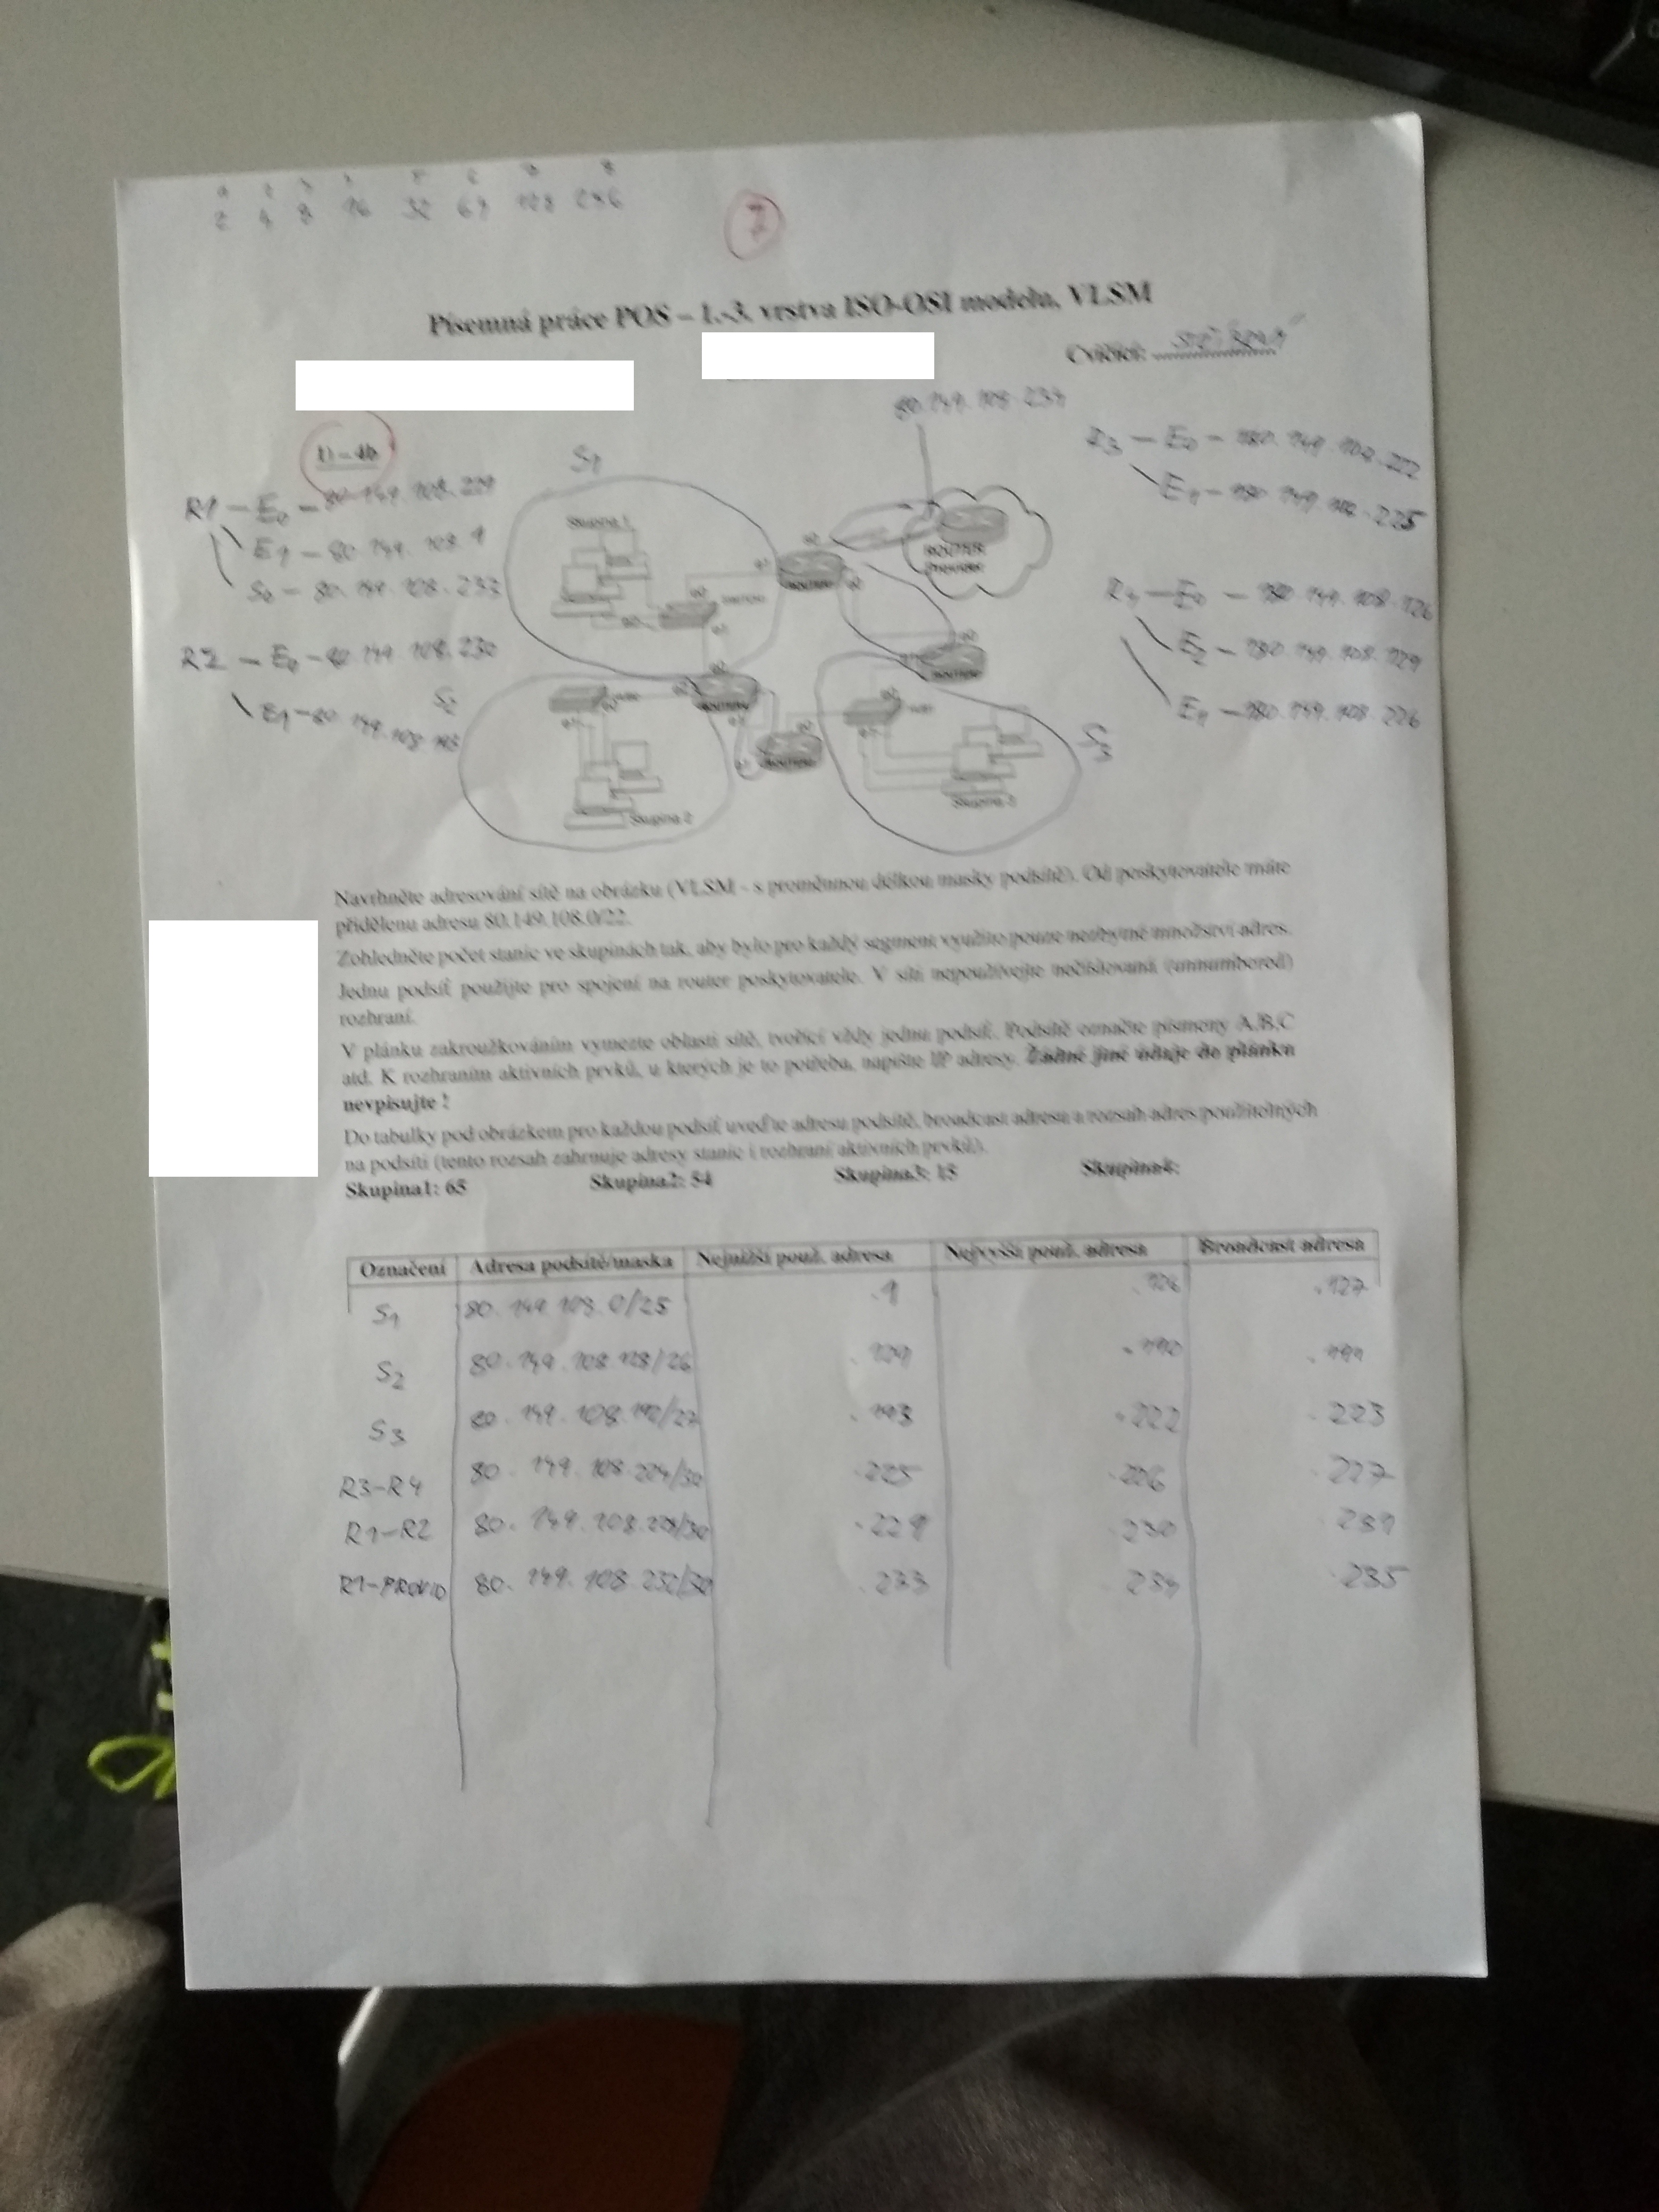 2 4 8 16 32 64 128 256
Písemná práce POS – 1.-3. vrstva ISO-OSI modelu, VLSM
Cvičící:
80.149.108.234
1) – 4b
S1
R1 – E0 – 80.149.108.229
E1 – 80.149.108.1
S0 – 80.149.108.233
R2 – E0 – 80.149.108.230
S2
R3 – E0 – 180.149.108.222
E1 – 180.149.108.225
E2 – 180.149.108.129
E1 – 180.149.108.226
S3
Skupina 1
ROUTER
Provider
Skupina 2
Skupina 3
Navrhněte adresování sítě na obrázku (VLSM - s proměnnou délkou masky podsítě). Od poskytovatele máte
přidělenu adresu 80.149.108.0/22.
Zohledněte počet stanic ve skupinách tak, aby bylo pro každý segment využito pouze nezbytné množství adres.
Jednu podsíť použijte pro spojení na router poskytovatele. V síti nepoužívejte nečíslovaná (unnumbered)
rozhraní.
V plánku zakroužkováním vymezte oblasti sítě, tvořící vždy jednu podsíť. Podsítě označte písmeny A,B,C
atd. K rozhraním aktivních prvků, u kterých je to potřeba, napište IP adresy. Žádné jiné údaje do plánku
nevpisujte !
Do tabulky pod obrázkem pro každou podsíť uveďte adresu podsítě, broadcast adresu a rozsah adres použitelných
na podsíti (tento rozsah zahrnuje adresy stanic i rozhraní aktivních prvků).
Skupina1: 65 Skupina2: 54 Skupina3: 15 Skupina4:
Označení Adresa podsítě/maska Nejnižší použ. adresa Nejvyšší použ. adresa Broadcast adresa
S1 80.149.108.0/25 .1 .126 .127
S2 80.149.108.128/26 .129 .190 .191
S3 80.149.108.192/27 .193 .222 .223
R3-R4 80.149.108.224/30 .225 .226 .227
R1-R2 80.149.108.228/30 .229 .230 .231
R1-PROVID 80.149.108.232/30 .233 234 .235